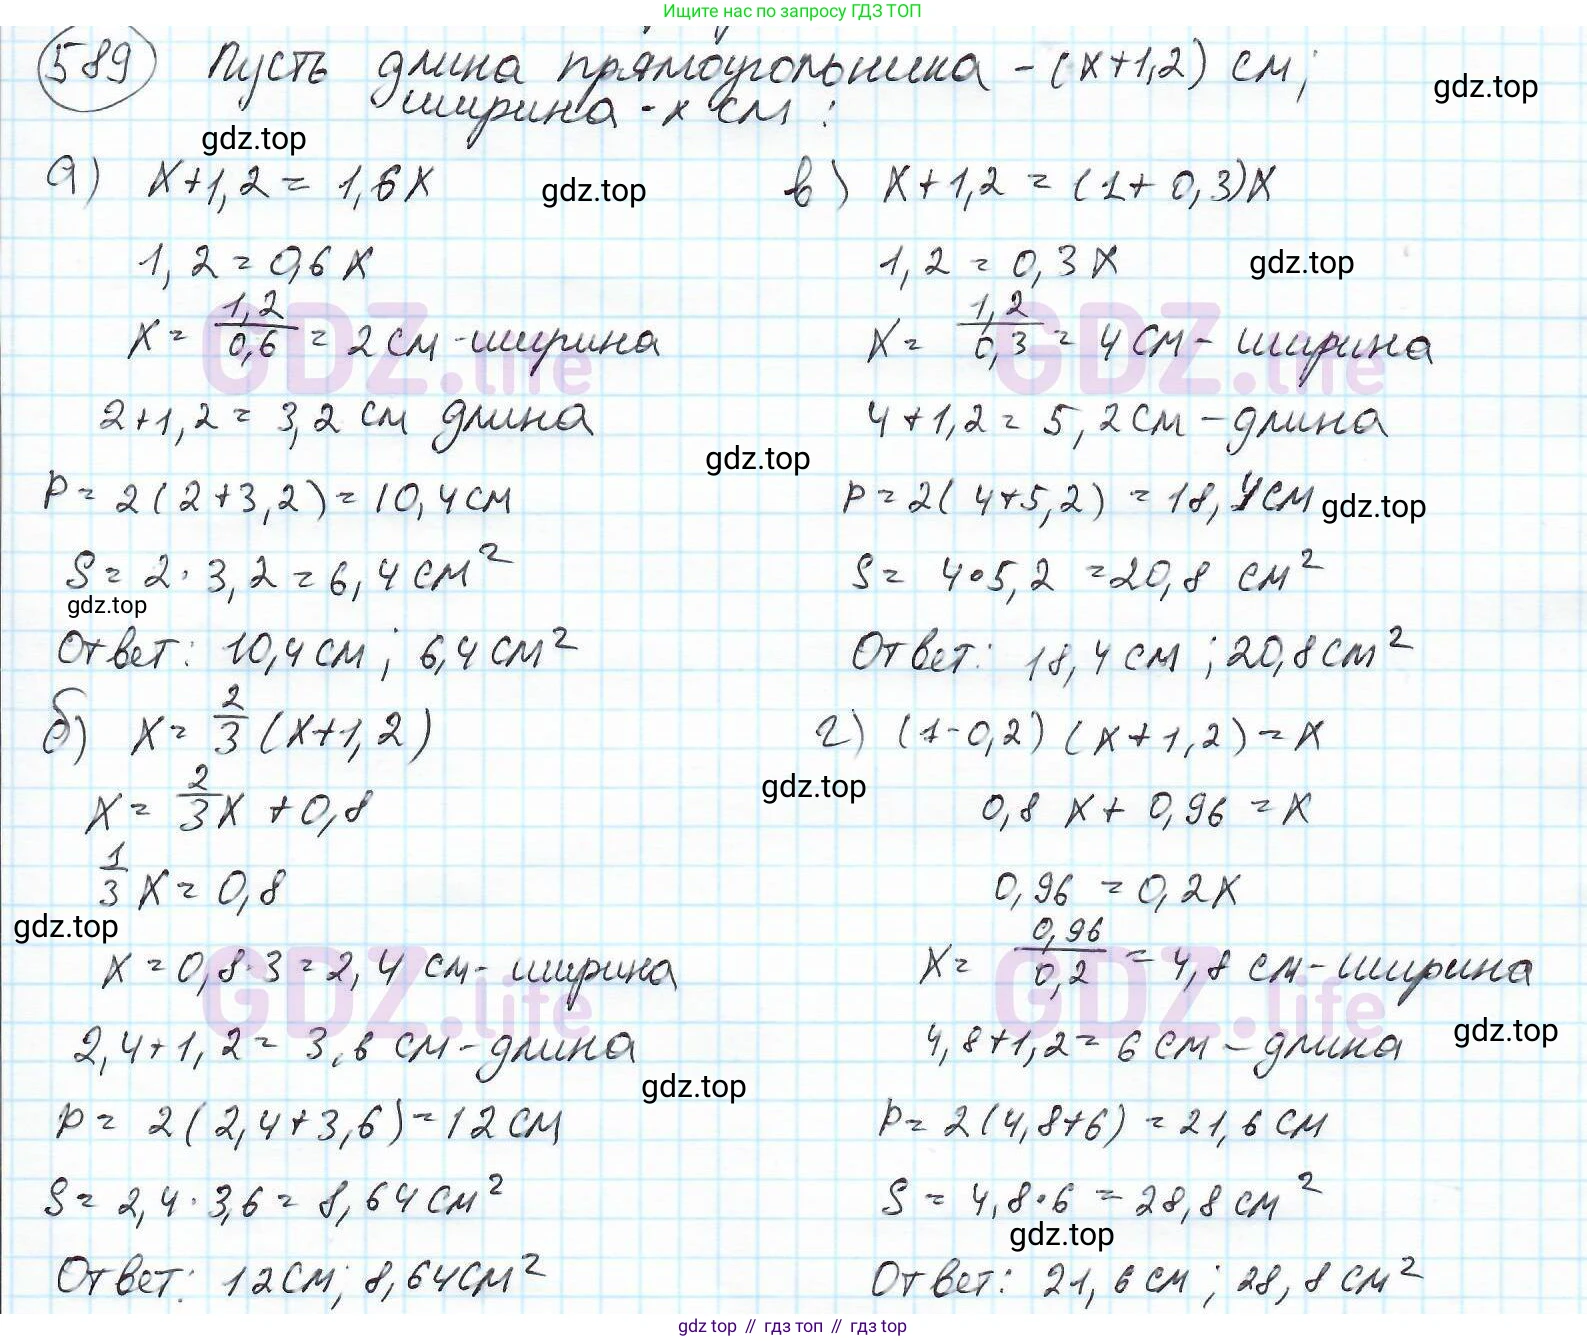 Ищите нас по запросу ГДЗ ТОП
589 Пусть длина прямоугольника - (x+1,2) см;
ширина - x см:
gdz.top
gdz.top
а) x+1,2 = 1,6x
1,2 = 0,6x
x = 1,2/0,6 = 2 см - ширина
2+1,2 = 3,2 см длина
P = 2(2+3,2) = 10,4 см
S = 2·3,2 = 6,4 см²
gdz.top
Ответ: 10,4 см; 6,4 см²
б) x = 2/3 (x+1,2)
x = 2/3 x + 0,8
1/3 x = 0,8
gdz.top
x = 0,8·3 = 2,4 см - ширина
2,4+1,2 = 3,6 см - длина
P = 2(2,4+3,6) = 12 см
S = 2,4·3,6 = 8,64 см²
Ответ: 12 см; 8,64 см²
gdz.top
gdz.top
gdz.top
gdz.top
в) x+1,2 = (1+0,3)x
1,2 = 0,3x
gdz.top
x = 1,2/0,3 = 4 см - ширина
4+1,2 = 5,2 см - длина
P = 2(4+5,2) = 18,4 см
gdz.top
S = 4·5,2 = 20,8 см²
Ответ: 18,4 см; 20,8 см²
г) (1-0,2)(x+1,2) = x
0,8x + 0,96 = x
gdz.top
0,96 = 0,2x
x = 0,96/0,2 = 4,8 см - ширина
4,8+1,2 = 6 см - длина
gdz.top
P = 2(4,8+6) = 21,6 см
S = 4,8·6 = 28,8 см²
gdz.top
Ответ: 21,6 см; 28,8 см²
GDZ.life
GDZ.life
GDZ.life
GDZ.life
gdz.top // гдз топ // гдз top